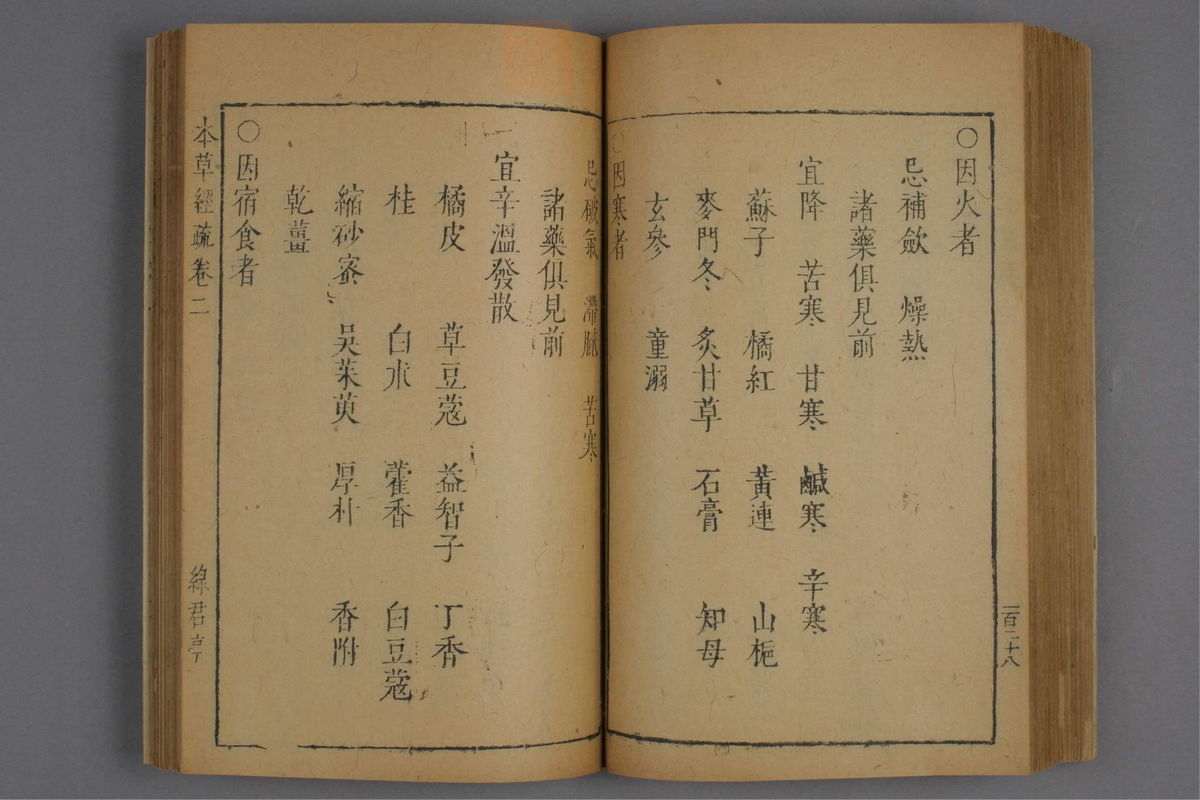 ○因火者
忌補斂 燥熱
諸藥俱見前
宜降 苦寒 甘寒 鹹寒 辛寒
蘇子 橘紅 黃連 山梔
麥門冬 炙甘草 石膏 知母
玄參 童溺
○因寒者
忌破氣 滯膩 苦寒
諸藥俱見前
宜辛溫發散
橘皮 草豆蔻 益智子 丁香
桂 白朮 藿香 白豆蔻
縮砂蜜 吳茱萸 厚朴 香附
乾薑
○因宿食者
本草經疏卷二 綠君亭
一百二十八